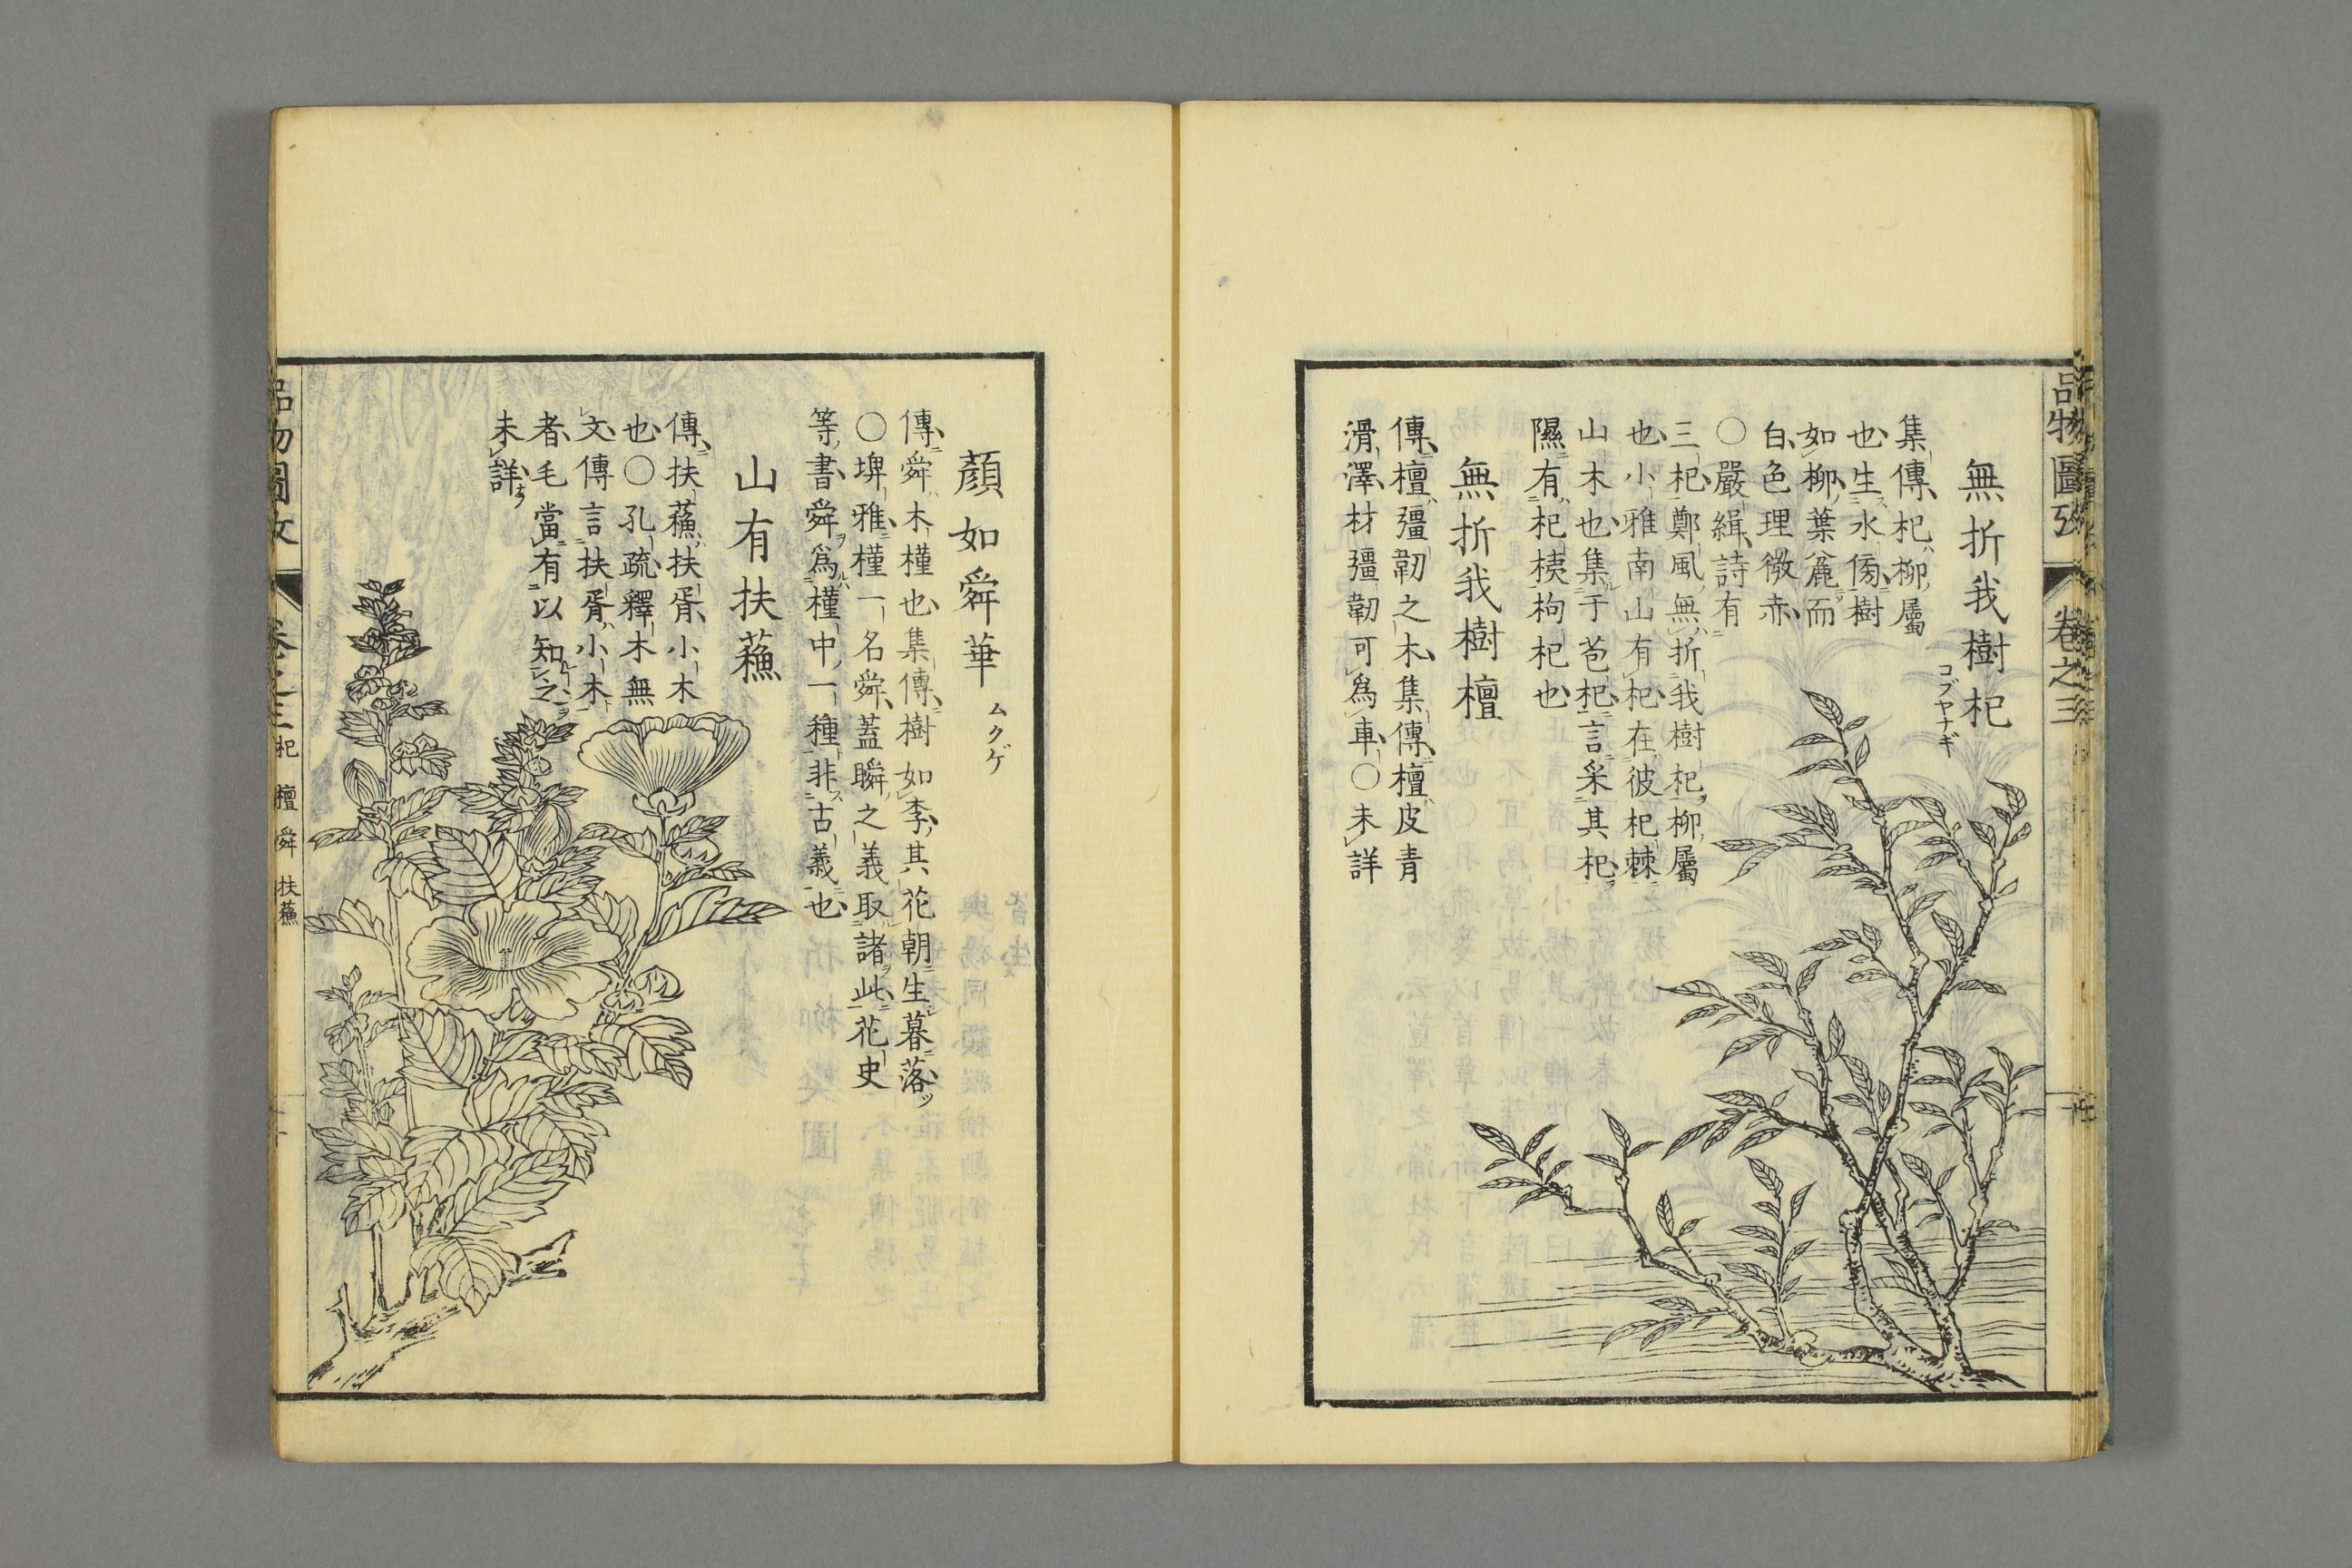 品物圖攷
卷之三
無折我樹杞
コブヤナギ
集傳杞柳屬
也生水傍樹
如柳葉麄而
白色理微赤
○嚴緝詩有
三杞鄭風無折我樹杞柳屬
也小雅南山有杞在彼杞棘
山木也集于苞杞言采其杞
隰有杞桋枸杞也
無折我樹檀
傳檀彊韌之木集傳檀皮青
滑澤材彊韌可爲車○未詳
顔如舜華
ムクゲ
傳舜木槿也集傳樹如李其花朝生暮落
○埤雅槿一名舜蓋瞬之義取諸此花史
等書舜爲槿中一種非古義也
山有扶蘓
傳扶蘓扶胥小木
也○孔疏釋木無
文傳言扶胥小木
者毛當有以知之
未詳
品物圖攷
卷之三
杞 檀 舜 扶蘓